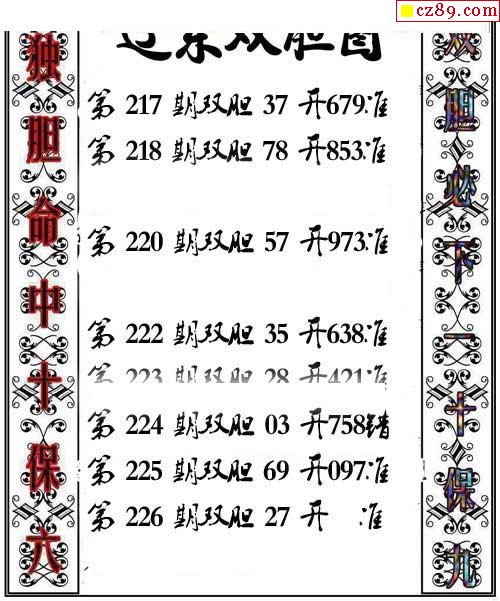 cz89.com
辽东双胆图
第 217 期双胆 37 开679准
第 218 期双胆 78 开853准
第 220 期双胆 57 开973准
第 222 期双胆 35 开638准
第 223 期双胆 28 开421准
第 224 期双胆 03 开758错
第 225 期双胆 69 开097准
第 226 期双胆 27 开 准
独胆命中十保六
双胆必下一十保九